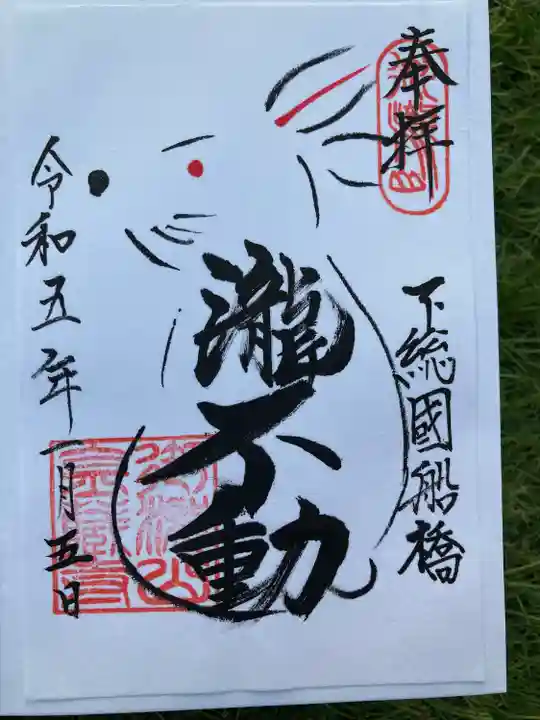 奉拝
下総國船橋
瀧不動
令和五年一月五日